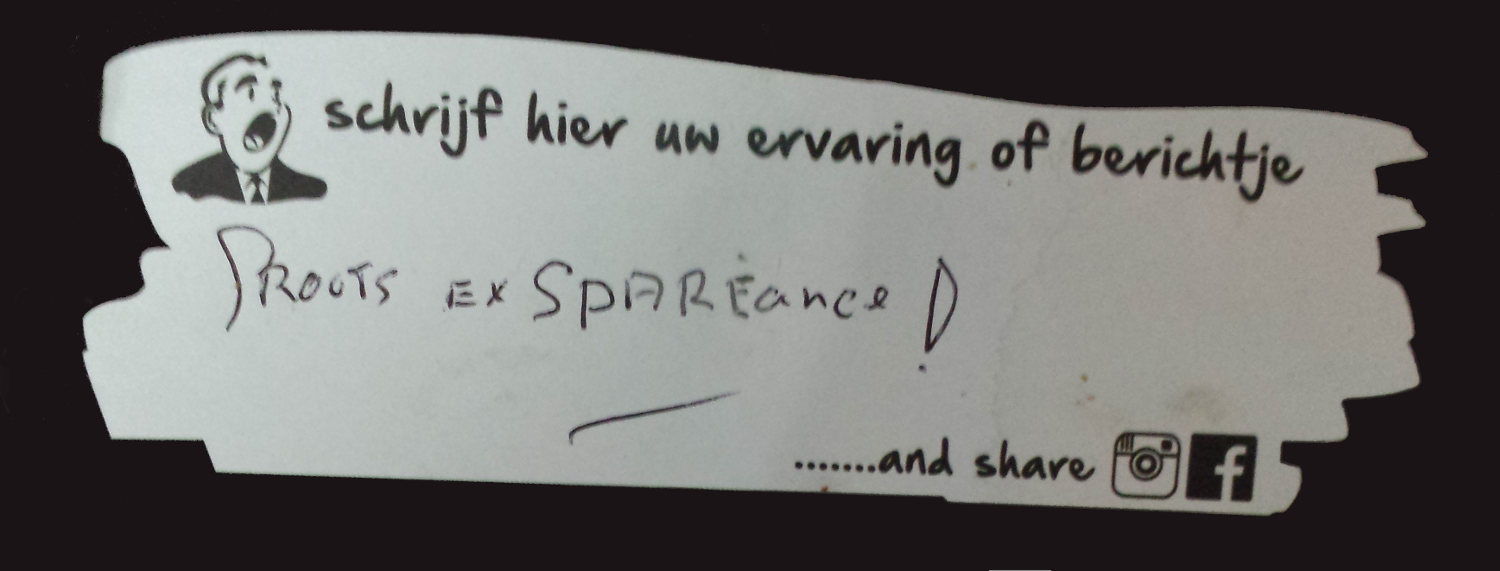 schrijf hier uw ervaring of berichtje
PROOTS EX SPAREance!
.......and share